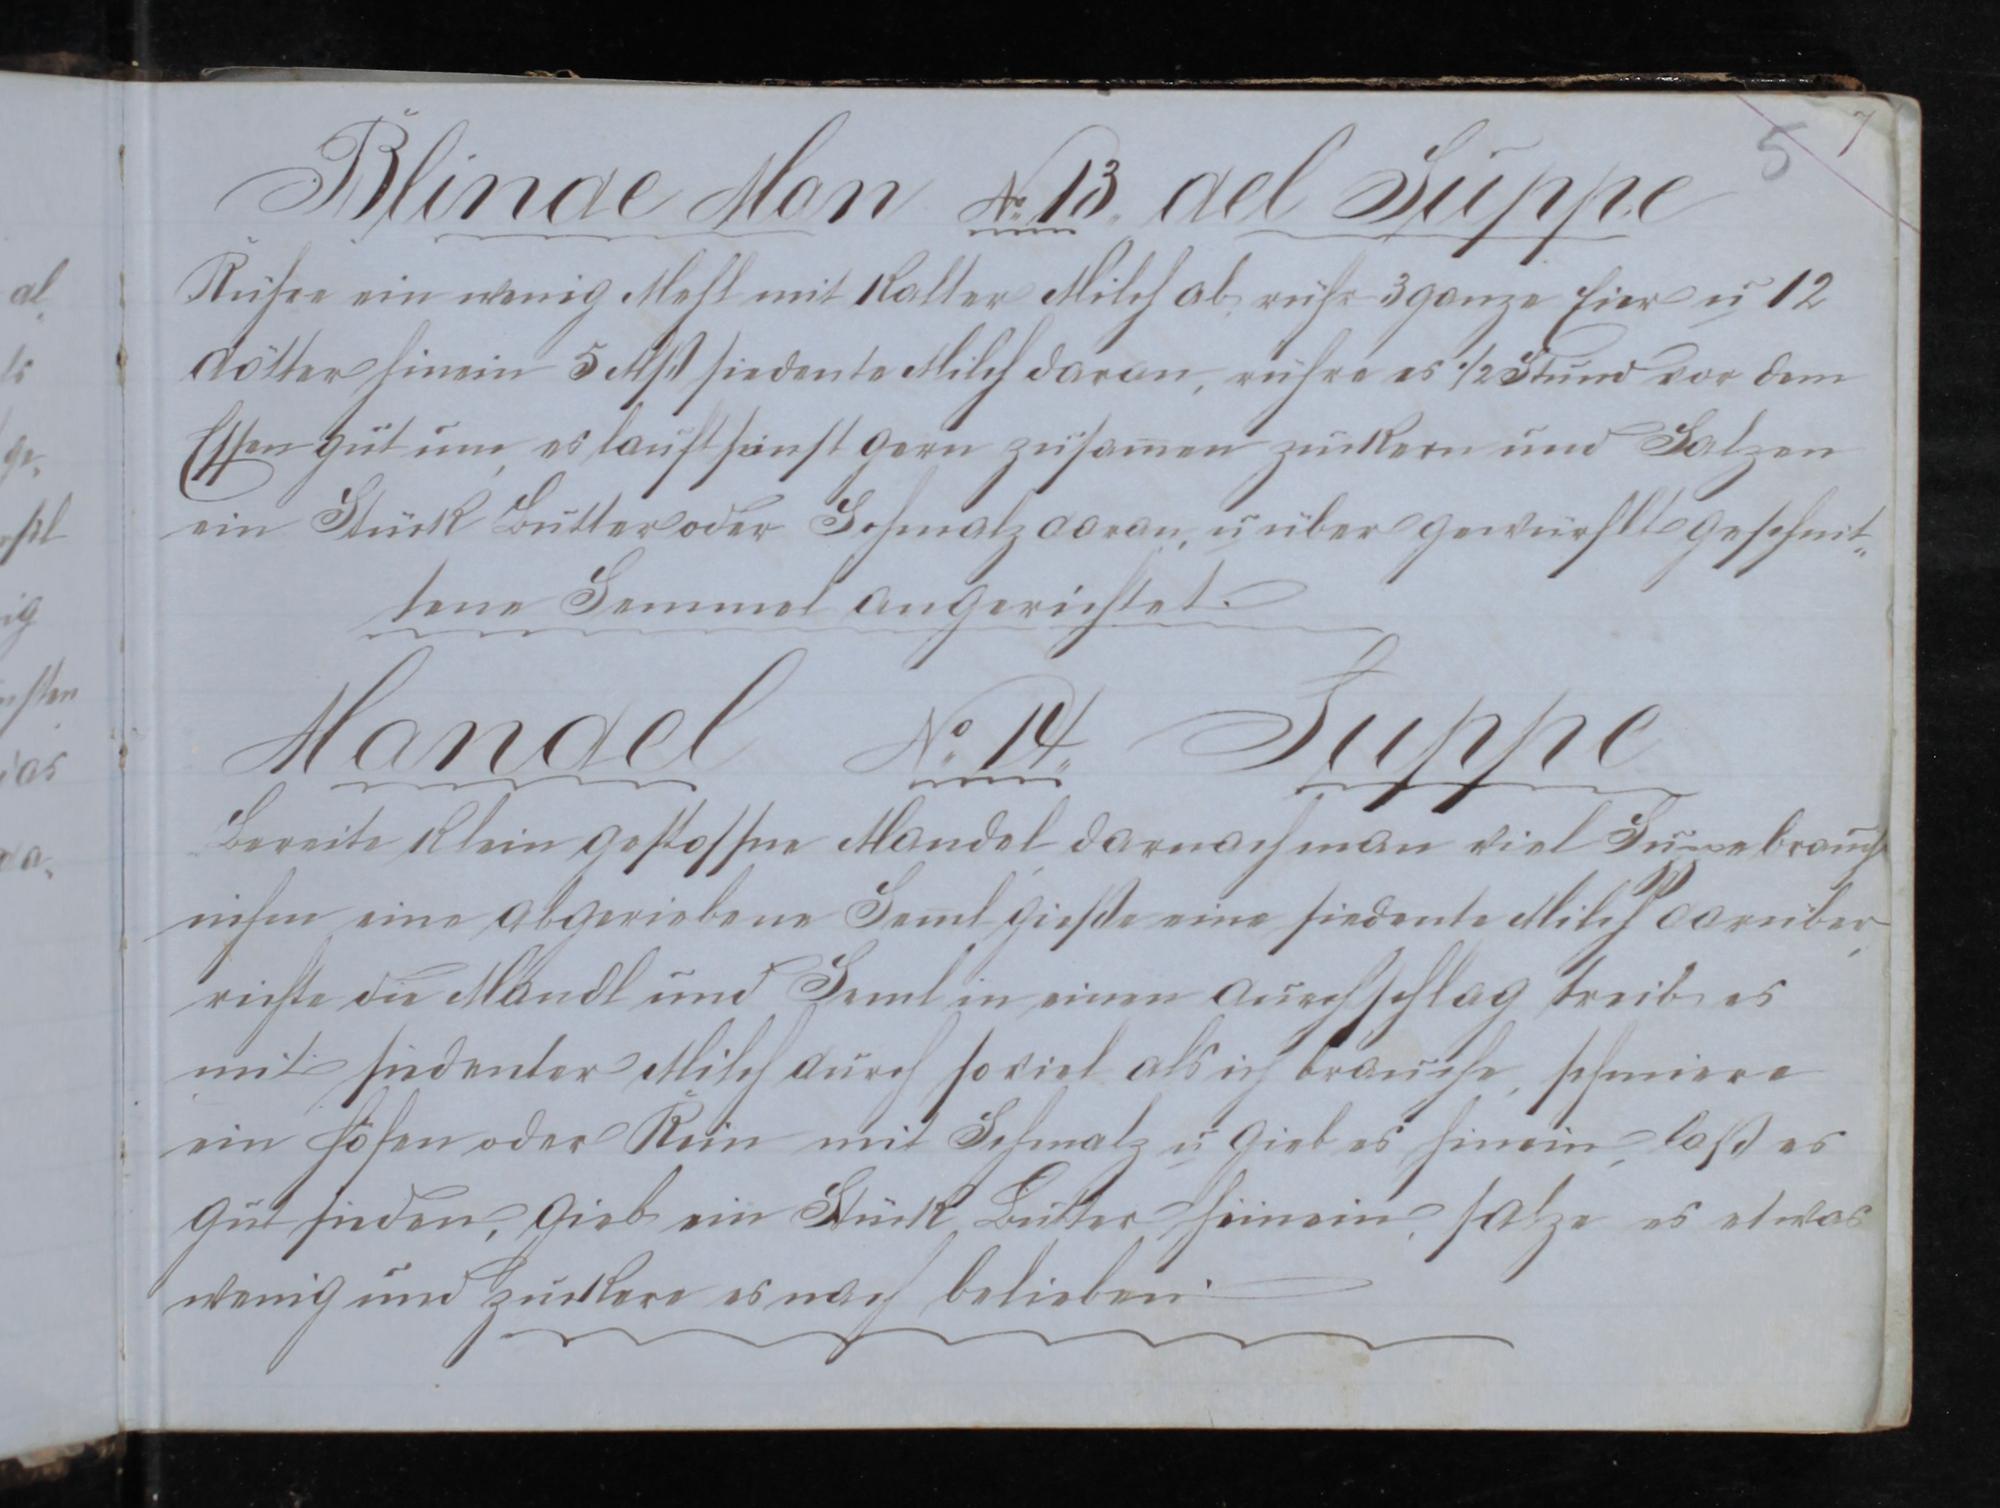 5 7
Blinde Man No. 13. del Suppe
Rühre ein wenig Mehl mit kalter Milch ab, rühr 3 ganze Eier u 12
Dötter hinein 5 Mß siedente Milch daran, rühre es 1/2 Stund vor dem
Essen gut um, es lauft sonst gern zusamen zukern und Salzen
ein Stück Butter oder Schmalz daran, u über gewürflt geschnit„
tene Semmel angerichtet.
Mandel No. 14. Suppe
Bereite klein gestossne Mandel darnach man viel Suppe brauch
nehm eine abgeriebene Seml gieße eine siedente Milch darüber,
richte die Mandl und Seml in einen durchschlag treib es
mit siedenter Milch durch soviel als ich brauche, schmiere
ein Hofen oder Rein mit Schmalz u gieb es hinein, laß es
gut sieden, gieb ein Stück Butter hinein, salze es etwas
wenig und zukere es nach belieben.
al
ts
ge„
ig
das